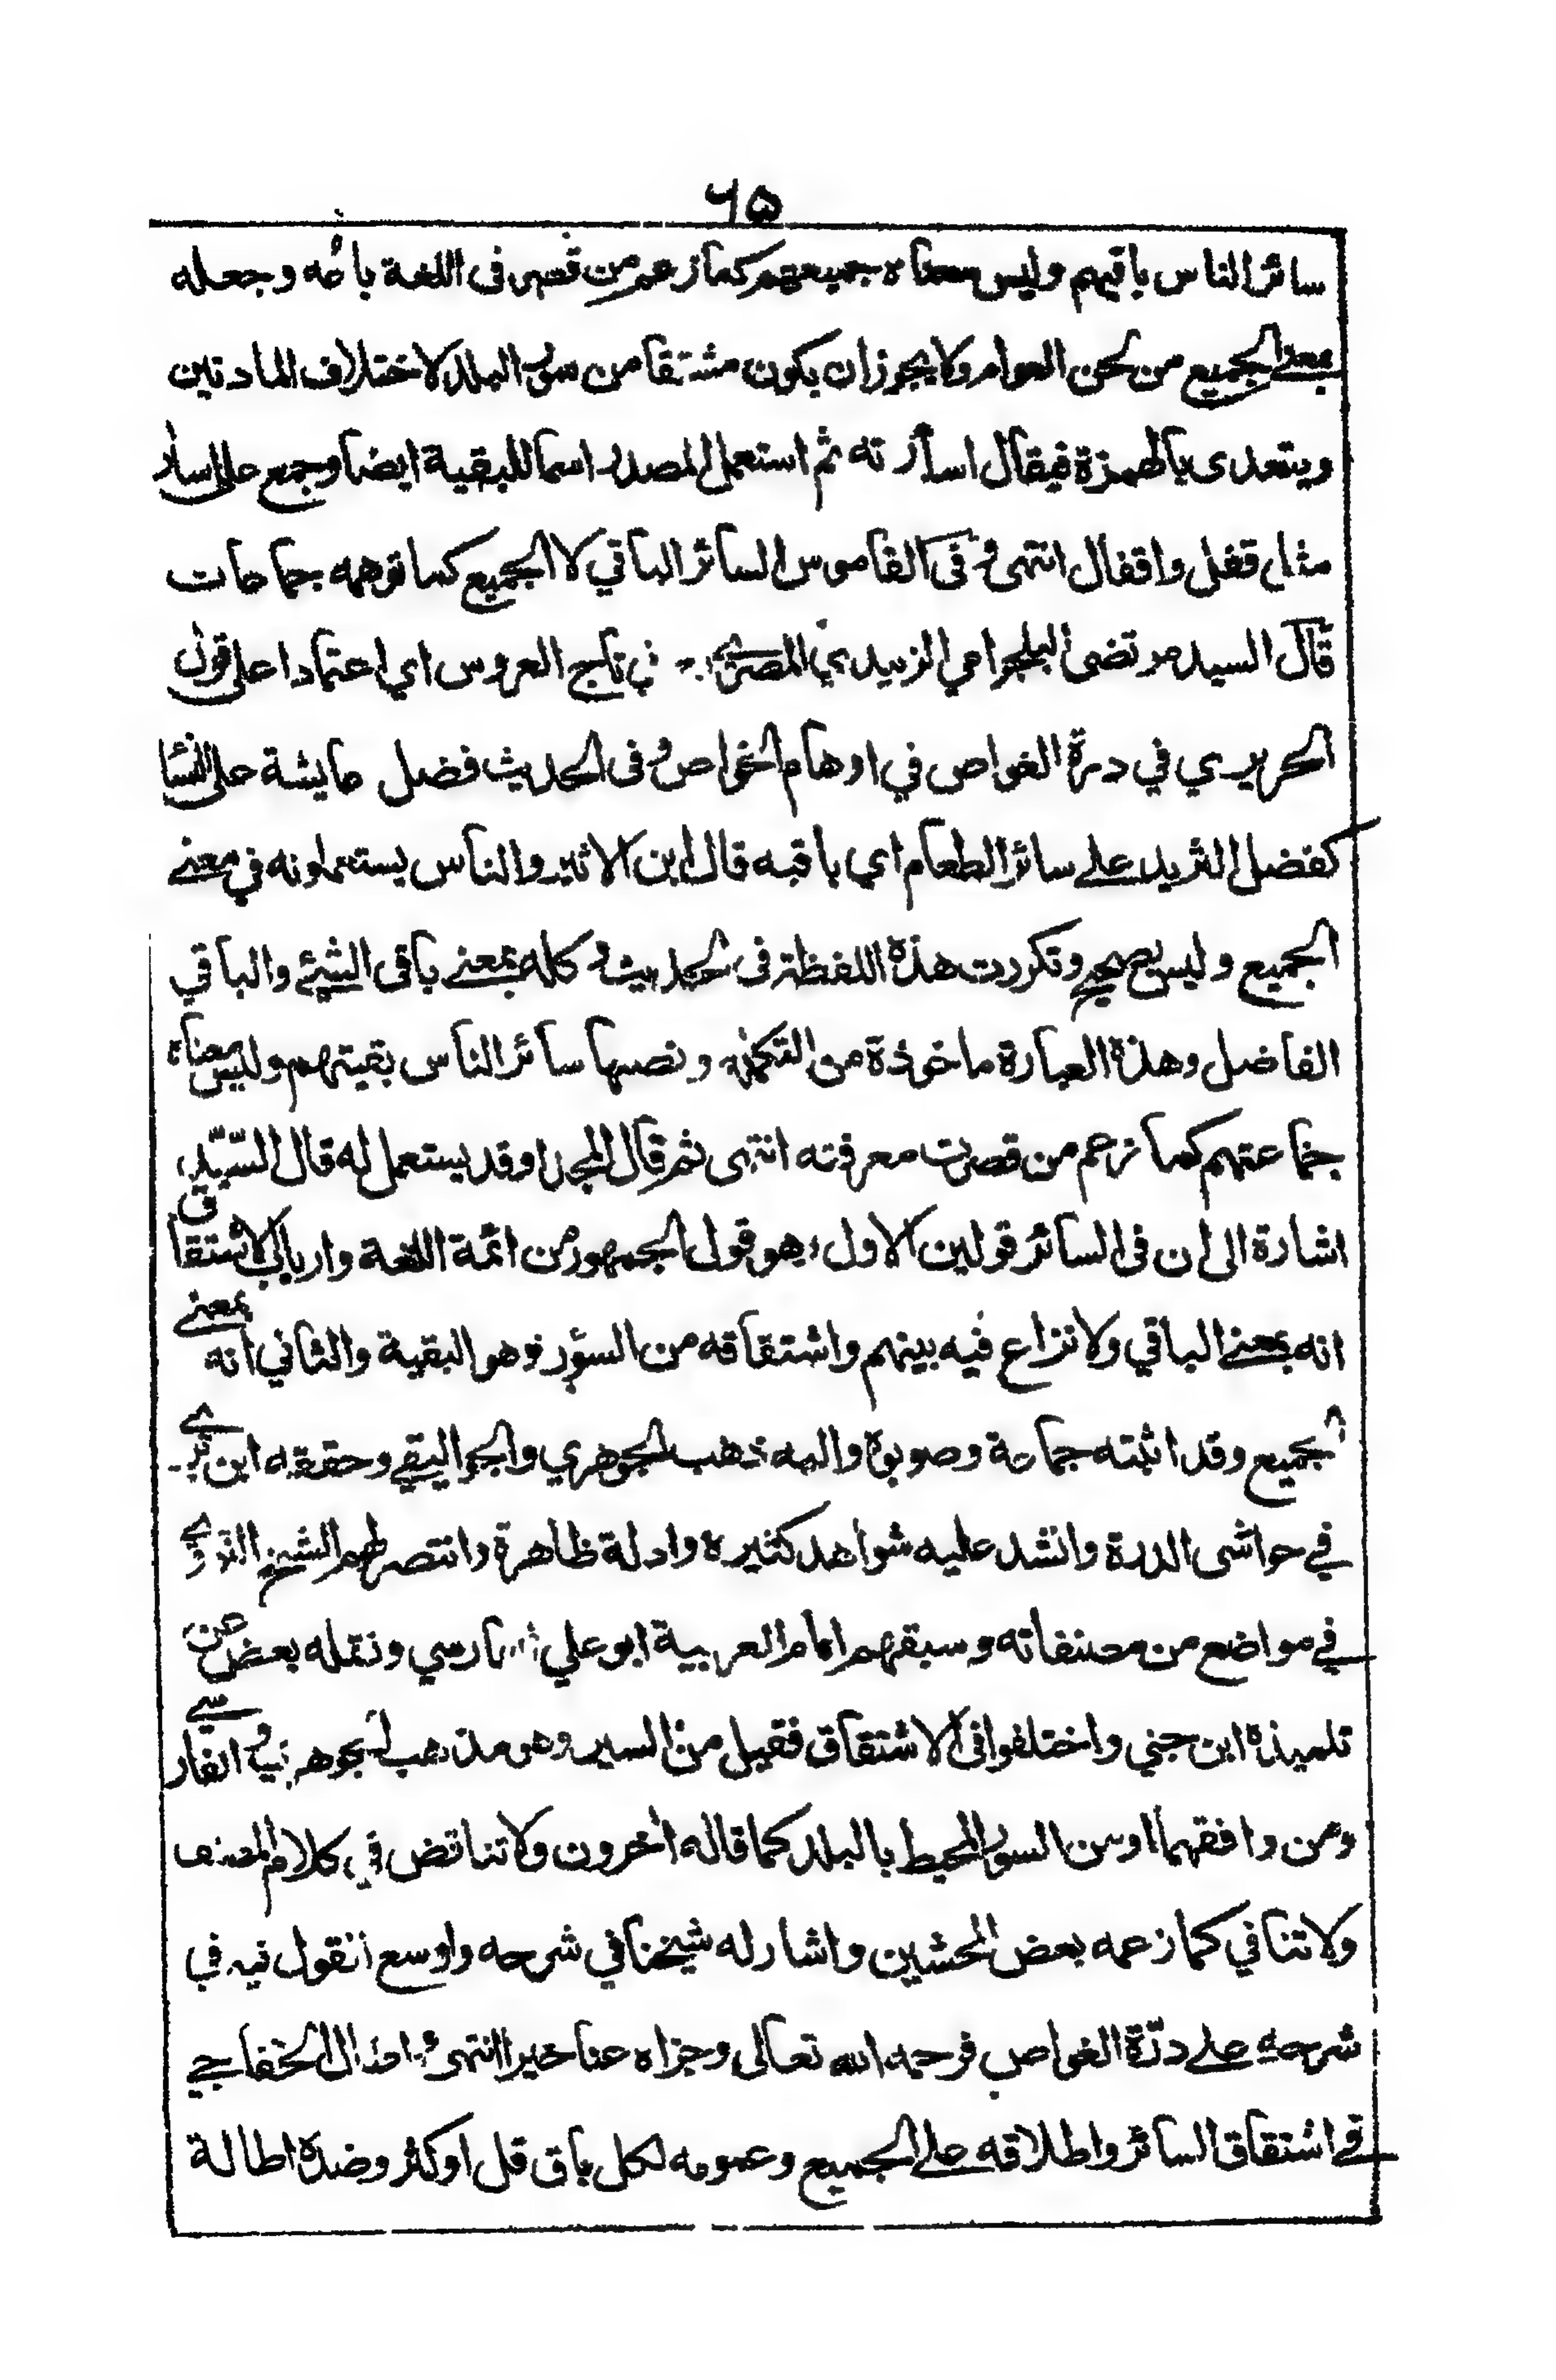 ٦٥
سائر الناس باقيهم وليس معناه جميعهم كما زعم من قصر فى اللغة باعه وجعله
بمعنے الجميع من لحن العوام ولا يجوز ان يكون مشتقا من سور البلد لاختلاف المادتين
ويتعدى بالهمزة فيقال اسأرته ثم استعمل المصدر اسما للبقية ايضا وجمع على اسار
مثل قفل واقفال انتهى وفى القاموس السائر الباقي لا الجميع كما توهمه جماعات
قال السيد مرتضى البلجرامي الزبيدي المصري في تاج العروس اي اعتمادا على قول
الحريري في درة الغواص في اوهام الخواص وفى الحديث فضل عايشة على النسا
كفضل الثريد علے سائر الطعام اي باقيه قال ابن الاثير والناس يستعملونه في معنے
الجميع وليس بصحيح وتكررت هذه اللفظة فى الحديث وكله بمعنے باقى الشئے والباقي
الفاضل وهذه العبارة ماخوذة من التكملة ونصها سائر الناس بقيتهم وليس معناه
جماعتهم كما زعم من قصرت معرفته انتهى ثم قال المجد او قد يستعمل له قال السّيّد
اشارة الى ان فى السائر قولين الاول وهو قول الجمهور من ائمة اللغة وارباب الاشتقاق
انه بمعنے الباقي ولا نزاع فيه بينهم واشتقاقه من السؤر وهو البقية والثاني انه بمعنے
الجميع وقد اثبته جماعة وصوبوه واليه ذهب الجوهري والجواليقے وحققه ابن برے
في حواشى الدرة وانشد عليه شواهد كثيره وادلة ظاهرة وانتصر لهم الشيخ النووے
في مواضع من مصنفاته وسبقهم امام العربية ابو علي الفارسي ونقله بعض عن
تلميذه ابن جني واختلفوا فى الاشتقاق فقيل من السير وهو مذهب الجوهري والفارسے
ومن وافقهما او من السور المحيط بالبلد كما قاله اخرون ولا تناقض في كلام المصنف
ولا تنافي كما زعمه بعض المحشين واشار له شيخنا في شرحه واوسع القول فيه في
شرحه علے درّة الغواص فرحمه الله تعالى وجزاه عنا خيرا انتهى و الخفاجي
في اشتقاق السائر واطلاقه علے الجميع وعمومه لكل باق قل او كثر وضده اطالة